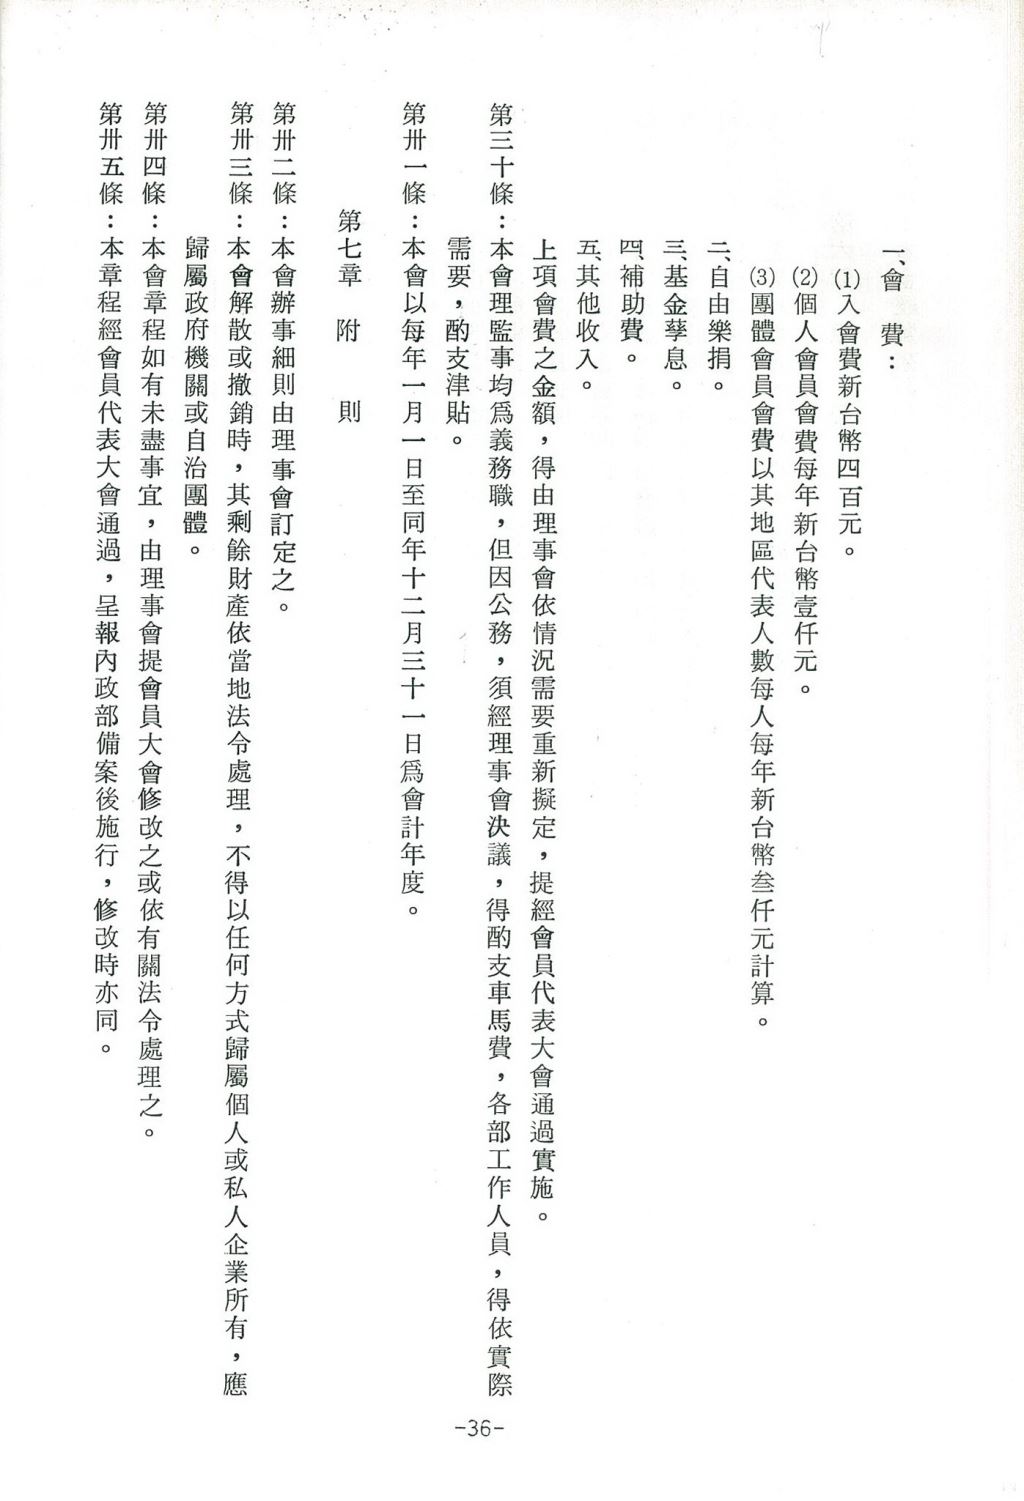 一、會　費：
⑴入會費新台幣四百元。
⑵個人會員會費每年新台幣壹仟元。
⑶團體會員會費以其地區代表人數每人每年新台幣叁仟元計算。
二、自由樂捐。
三、基金孳息。
四、補助費。
五、其他收入。
上項會費之金額，得由理事會依情況需要重新擬定，提經會員代表大會通過實施。
第三十條：本會理監事均爲義務職，但因公務，須經理事會決議，得酌支車馬費，各部工作人員，得依實際
需要，酌支津貼。
第卅一條：本會以每年一月一日至同年十二月三十一日爲會計年度。
第七章　附　則
第卅二條：本會辦事細則由理事會訂定之。
第卅三條：本會解散或撤銷時，其剩餘財產依當地法令處理，不得以任何方式歸屬個人或私人企業所有，應
歸屬政府機關或自治團體。
第卅四條：本會章程如有未盡事宜，由理事會提會員大會修改之或依有關法令處理之。
第卅五條：本章程經會員代表大會通過，呈報內政部備案後施行，修改時亦同。
-36-